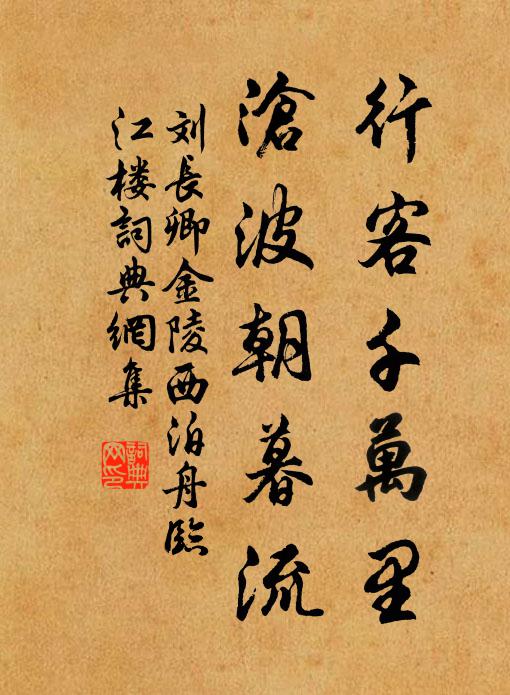 行客千萬里
滄波朝暮流
刘長卿金陵西泊舟臨
江楼詞典網集
詞典
网印